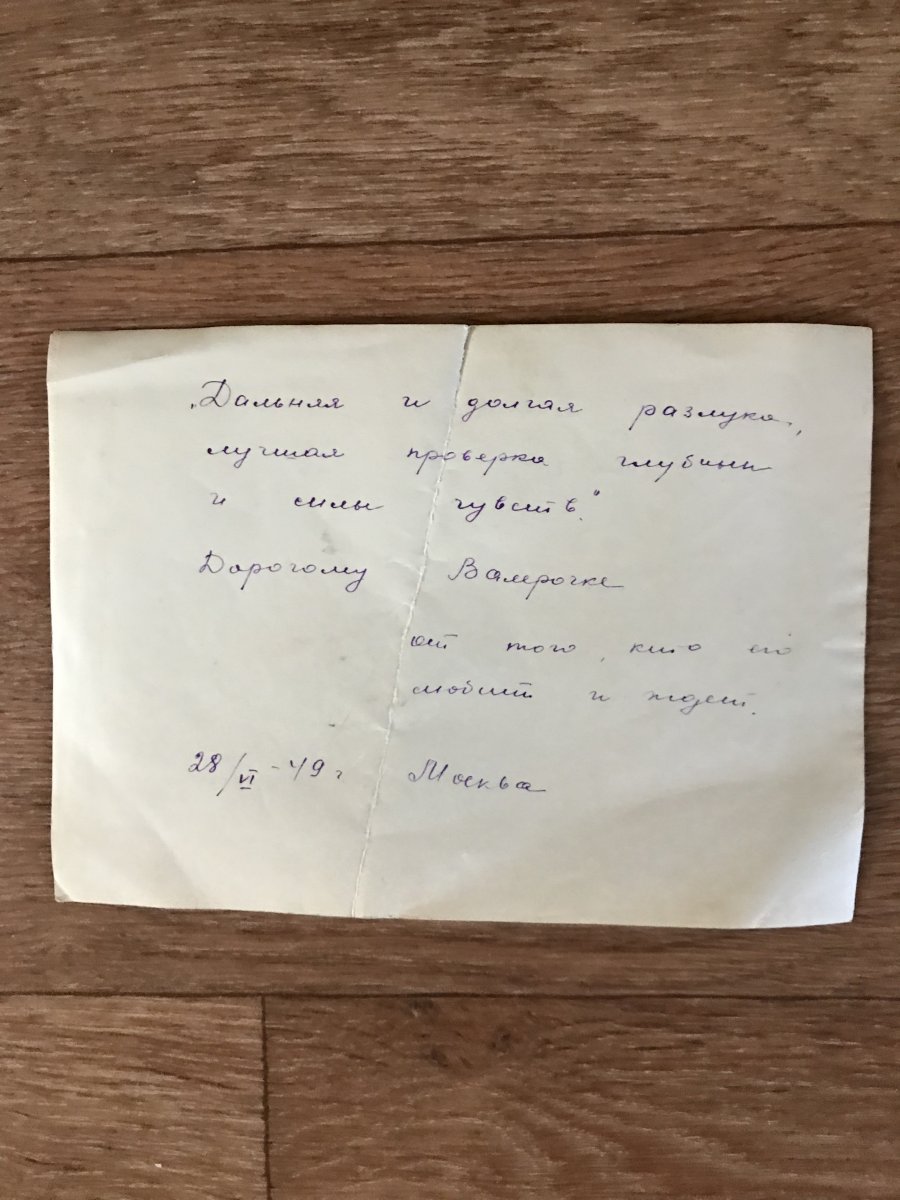 „Дальняя и долгая разлука,
лучшая проверка глубины
и силы чувств."
Дорогому Валерочке
от того, кто его
любит и ждет.
28/VI - 49 г Москва